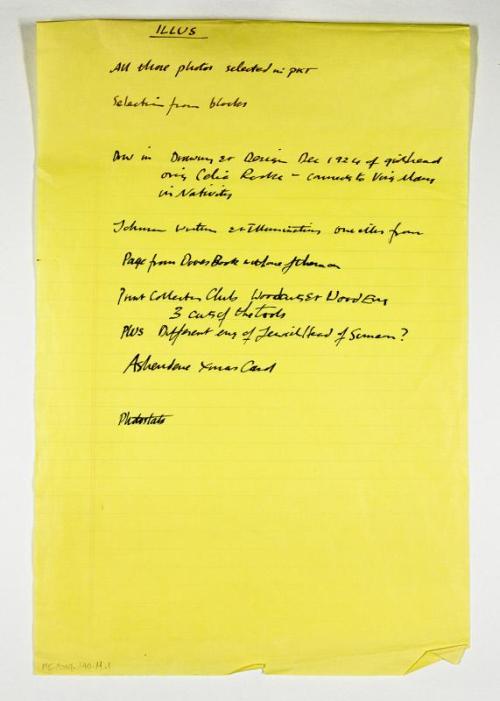 ILLUS
All those photos selected in part
Selection from blocks
Drw in Drawing & Design Dec 1924 of girlhead
orig Celia Rooke - connects to Virg Mary
in Nativity
Johnson Writing & Illuminating one illus from
Page from Doves Book without Johnson
Print Collectors Club Woodcuts & Wood Eng
3 cuts of the tools
PLUS Different eng of Jewish Head of Simeon?
Ashendene Xmas Card
Photostats